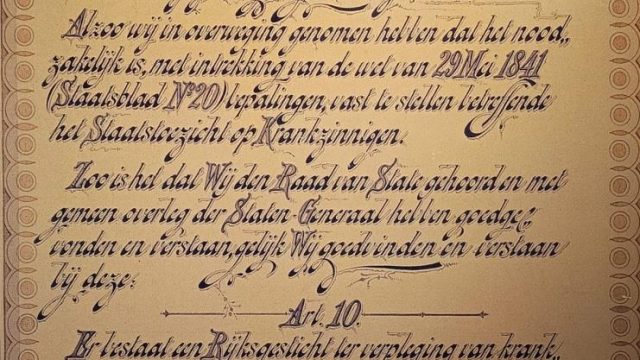 Alzoo wij in overweging genomen hebben dat het nood„
zakelijk is, met intrekking van de wet van 29 Mei 1841
(Staatsblad No 20) bepalingen, vast te stellen betreffende
het Staatstoezicht op Krankzinnigen.
Zoo is het dat Wij den Raad van State gehoord en met
gemeen overleg der Staten-Generaal hebben goedge„
vonden en verstaan, gelijk Wij goedvinden en verstaan
bij deze:
Art. 10.
Er bestaat een Rijksgesticht ter verpleging van krank„